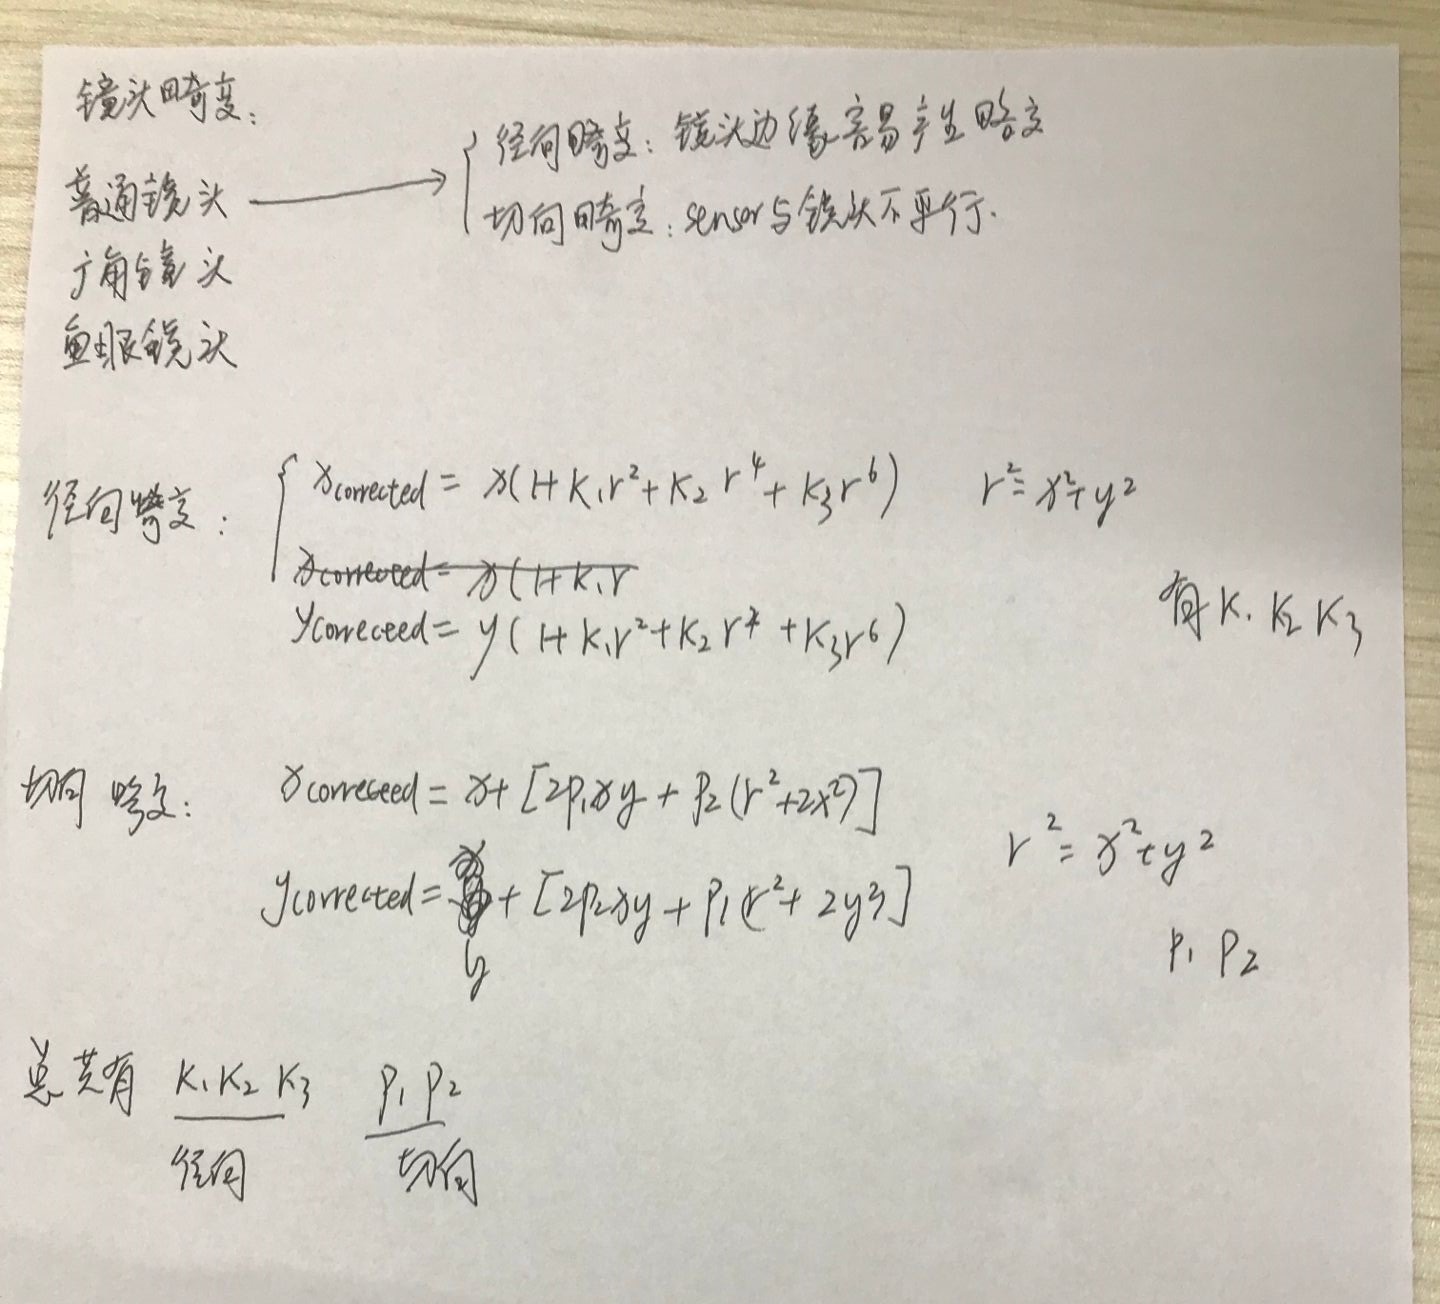 镜头畸变：
普通镜头 → { 径向畸变：镜头边缘容易产生畸变
切向畸变：sensor与镜头不平行.
广角镜头
鱼眼镜头
径向畸变： { xcorrected = x(1+K₁r²+K₂r⁴+K₃r⁶) r²=x²+y²
xcorrected = x(1+K₁r
ycorreceed = y(1+K₁r²+K₂r⁴+K₃r⁶)
有K₁ K₂ K₃
切向畸变： xcorreceed = x+[2p₁xy+p₂(r²+2x²)]
ycorrected = y+[2p₂xy+p₁(r²+2y²)]
r²=x²+y²
p₁ p₂
总共有 K₁K₂K₃ p₁p₂
径向 切向